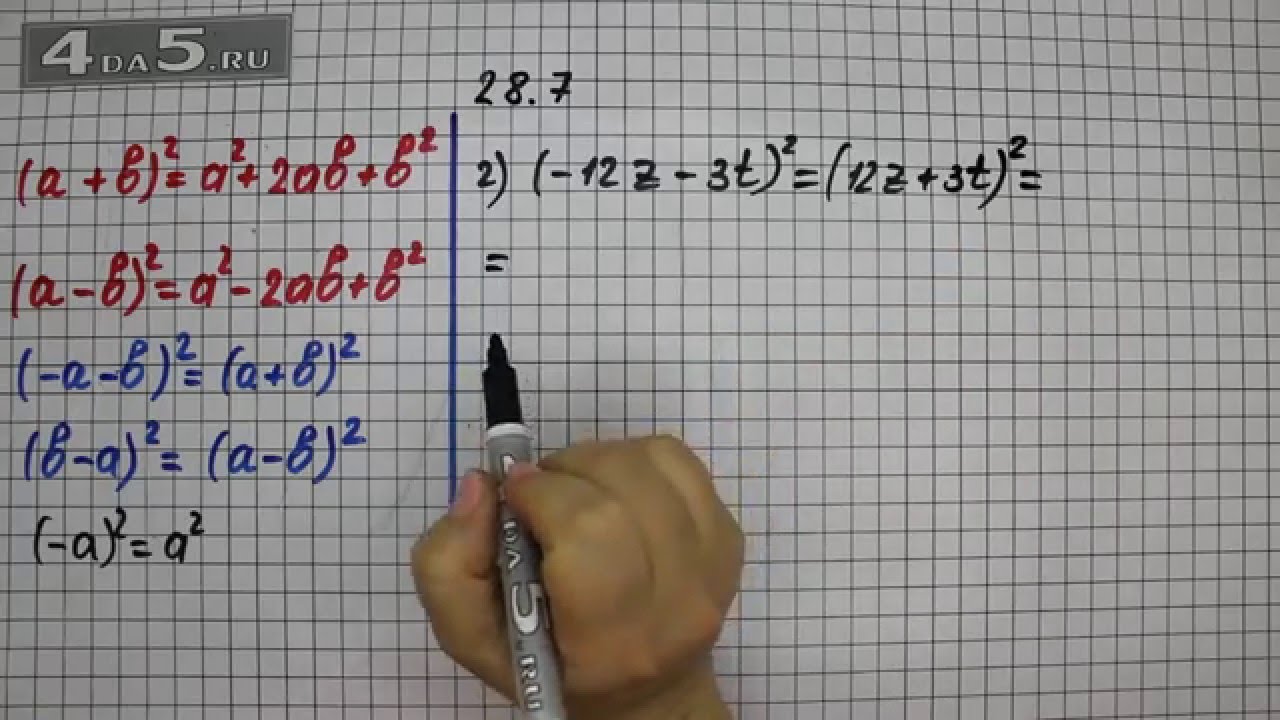 4DA5.RU
28.7
(a + b)² = a² + 2ab + b²
(a - b)² = a² - 2ab + b²
(-a - b)² = (a + b)²
(b - a)² = (a - b)²
(-a)² = a²
2) (-12z - 3t)² = (12z + 3t)² =
=
4DA5.RU